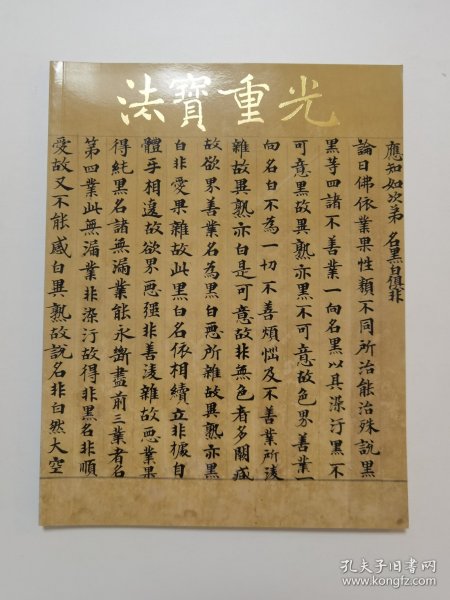 法寶重光
應知如次第 名黑白俱非
論曰佛依業果性類不同所治能治殊說黑
黑等四諸不善業一向名黑以具染汙黑不
可意黑故異熟亦黑不可意故色界善業一
向名白不為一切不善煩惱及不善業所淩
雜故異熟亦白是可意故非無色者多闕感
故欲界善業名為黑白惡所雜故異熟亦黑
白非愛果雜故此黑白名依相續立非據自
體乎相違故欲界惡强非善淩雜故惡業果
得純黑名諸無漏業能永斷盡前三業者名
第四業此無漏業非染汙故得非黑名非順
愛故又不能感白異熟故說名非白然大空
孔夫子旧书网
www.kongfz.com